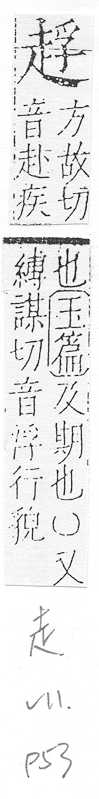 方故切
音赴疾
也玉篇及期也○又
縛謀切音浮行貌
走
VII.
P53